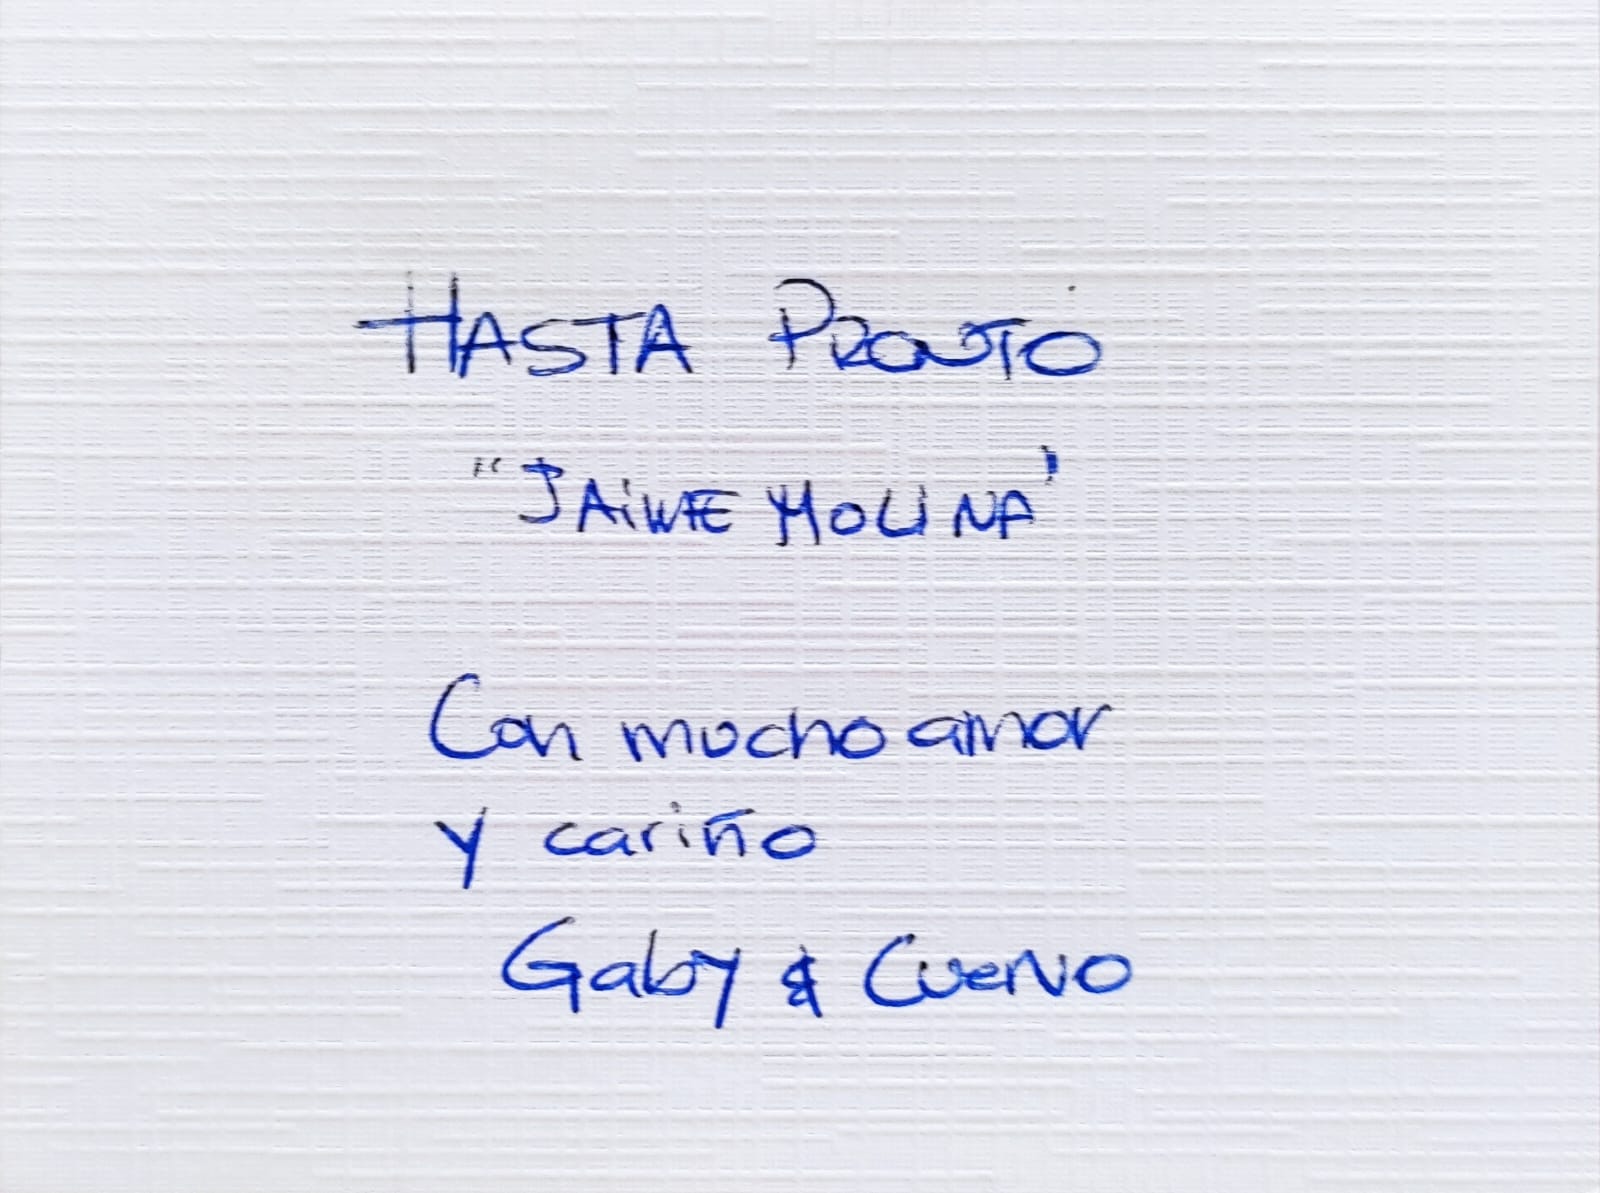 HASTA PRONTO
"JAiME MOLINA"
Con mucho amor
y cariño
Gaby & Cuervo